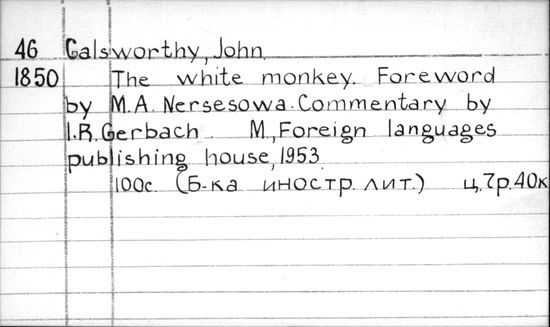 46 Galsworthy, John.
1850 The white monkey. Foreword
by M.A. Nersesowa. Commentary by
I.R. Gerbach. M., Foreign languages
publishing house, 1953.
100с. (Б-ка иностр. лит.) ц. 7р. 40к